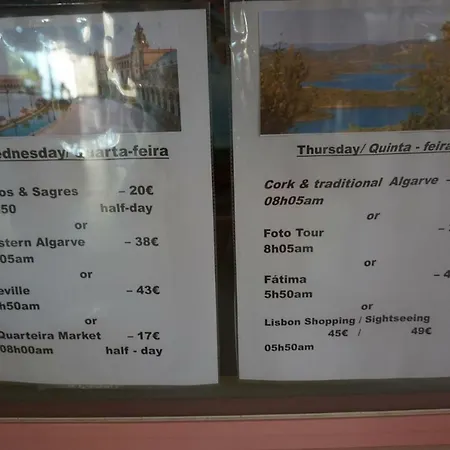 ednesday/ Quarta-feira
os & Sagres – 20€
50 half-day
or
stern Algarve – 38€
05am
or
eville – 43€
h50am
or
Quarteira Market – 17€
08h00am half - day
Thursday/ Quinta - feira
Cork & traditional Algarve –
08h05am
or
Foto Tour –
8h05am
or
Fátima – 4
5h50am
or
Lisbon Shopping / Sightseeing
45€ / 49€
05h50am